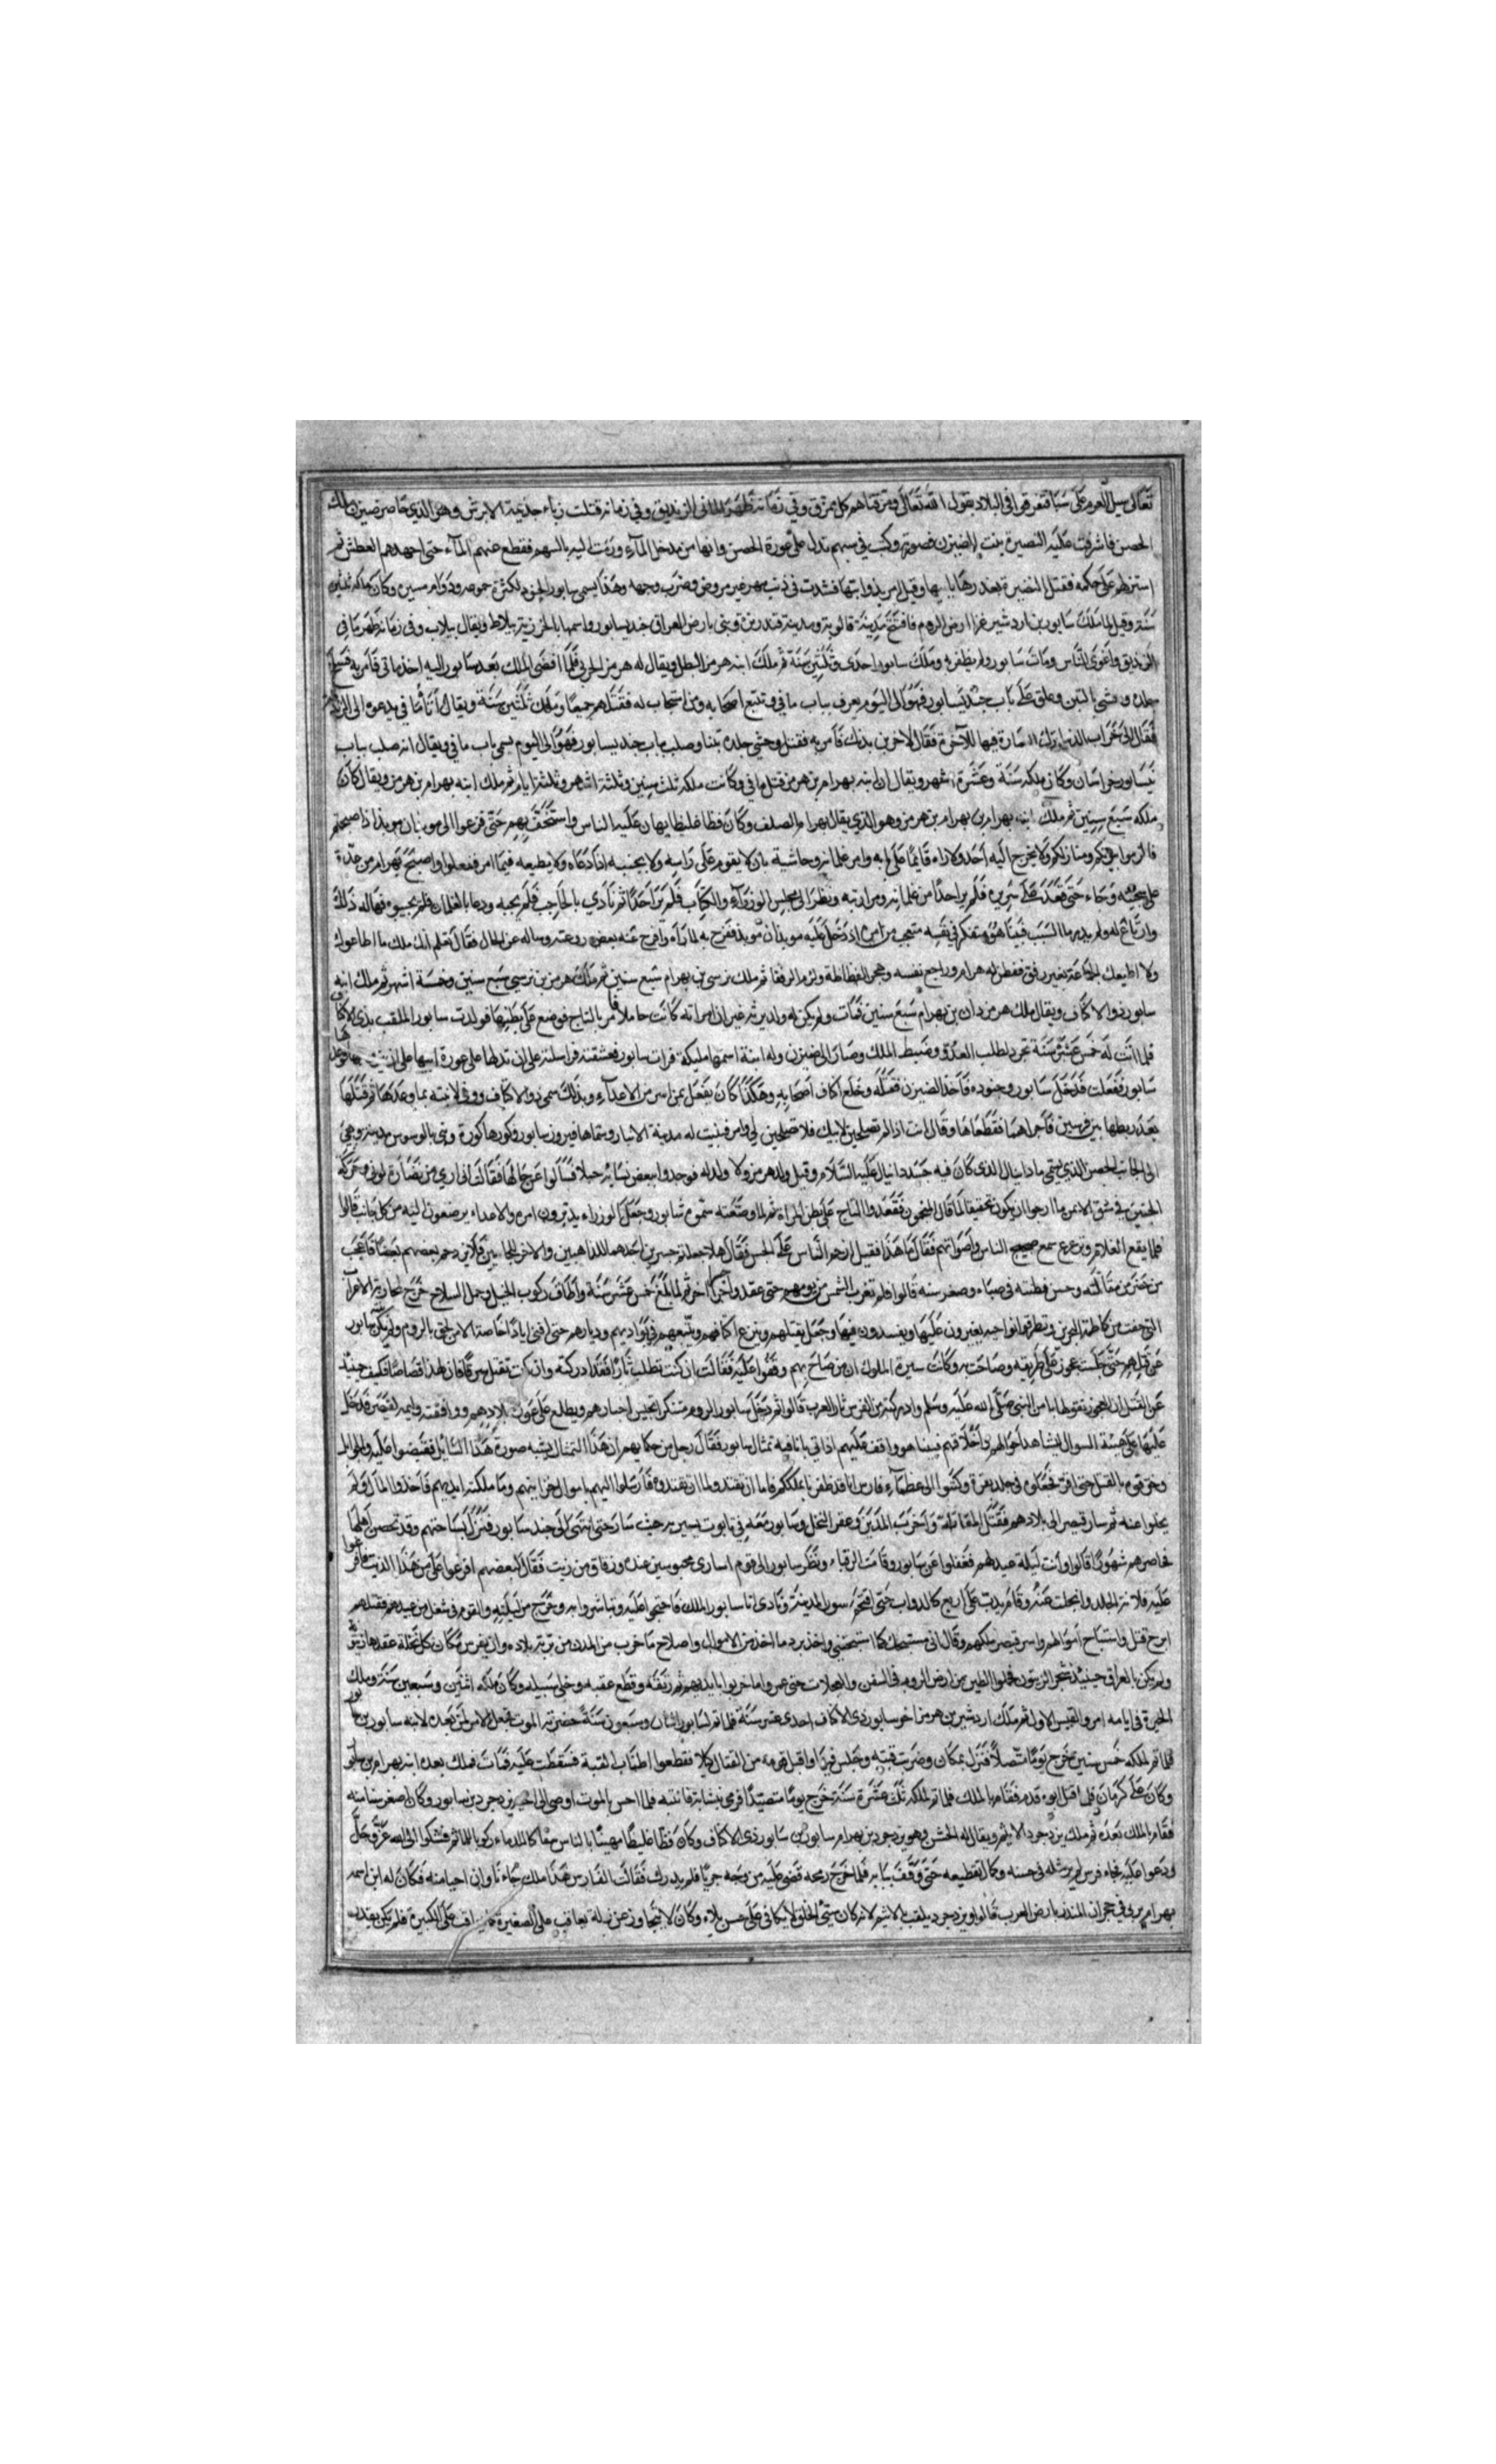 تعالى سيل العرم على سبا فتفرقوا في البلاد بقول الله تعالى ومزقناهم كل ممزق وفي زمانه ظهر ماني الزنديق وفي زمانه قتلت زباء جذيمة الابرش وهو الذي حاصر ضيزن الملك
الحصن فاشرفت عليه النضيرة بنت الضيزن وكتب في سهم تدل على عورة الحصن وانها من مدخل الماء ورمت اليه بالسهم فقطع عنهم الماء حتى اجهدهم العطش ثم
استنزلهم على حكمه فقتل النضيرة بعد ابيها وقيل امر بذوابتها فشدت في ذنب مهر غير مروض وضرب وجهه وهذا يسمى سابور الجنود لكثرة
سنة وقيل لما ملك سابور بن اردشير غزا ارض الروم فافتتح مدينة قالوبة ومدينة وبنى بارض العراق جنديسابور واسمها بالخوزية بيلاط ويقال بيلاب وفي زمانه ظهر ماني
الزنديق واغوى الناس ومات سابور ولم يظفر به وملك سابور احدى وثلثين سنة ثم ملك ابنه هرمز البطل ويقال له هرمز الجري فلما افضى الملك بعد سابور اليه اخذ ماني فامر به فسلخ
جلده وحشي بالتبن وعلق على باب جنديسابور فهو الى اليوم يعرف بباب ماني وتتبع اصحابه ومن استجاب له فقتلهم جميعا وملك ثلثين سنة ويقال اتاه ماني يدعوه الى الزندقة
فقال الى خراب الدنيا وترك العمارة فيها للآخرة فقال لاخربن بدنك فامر به فقتل وحشي جلده تبنا وصلب بباب جنديسابور فهو الى اليوم يسمى باب ماني ويقال انه صلب بباب
نيسابور خراسان وكان ملكه سنة وعشرة اشهر ويقال ان ابنه بهرام بن هرمز قتل ماني وكانت ملكه ثلث سنين وثلثة اشهر وثلثة ايام ثم ملك ابنه بهرام بن هرمز ويقال كان
ملكه سبع سنين ثم ملك ابنه بهرام بن بهرام بن هرمز وهو الذي يقال بهرام الصلف وكان فظا غليظا يهان عليه الناس واستخف بهم حتى فزعوا الى موبذان موبذ اذا اصبحتم
فالزموا بيوتكم ومنازلكم ولا يخرج اليه احد ولا اراه قايما على بابه وامر غلمانه وحاشية بان لا يقوم على راسه ولا يجيبه اذا دعاه ولا يطيعه فيما امر ففعلوا واصبح بهرام من
على سجيته وجاء حتى قعد على سريره فلم ير احدا من غلمانه ومرازبته ونظر الى مجلس الوزراء والكتاب فلم ير احدا ثم نادى بالحاجب فلم يجبه ودعا بالغلمان فلم يجيبوه فهاله ذلك
وارتاع له ولم يدر ما السبب فبينا هو متفكر في نفسه متعجب من امره اذ دخل عليه موبذان موبذ ففرح به لما رآه وافرخ عنه بعض روعته وساله عن الحال فقال تعلم انك ملك ما اطاعوك
ولا اطيعك الجماعة بغير رفق ففطن له بهرام وراجع نفسه وهجر الفظاظة ولزم الرفق ثم ملك نرسي بن بهرام سبع سنين ثم ملك هرمز بن نرسي سبع سنين وخمسة اشهر ثم ملك ابنه
سابور ذو الاكتاف ويقال ملك هرمزدان بن بهرام سبع سنين فمات ولم يكن له ولد يرثه غير ان امراته كانت حاملا فامر بالتاج فوضع على بطنها فولدت سابور الملقب بذي الاكتاف
فلما اتت له خمس عشرة سنة تجرد لطلب العدو وضبط الملك وصار الى ضيزن وله ابنة اسمها مليكة فرات سابور فعشقته فراسلته على ان تدلها على عورة ابيها على ان
سابور ففعلت فدخل سابور وجنوده فاخذ الضيزن فقتله وخلع اكتاف اصحابه وهكذا كان يفعل بمن اسر من الاعداء وبذلك سمي ذو الاكتاف ووفى لابنته بما وعدها ثم قتلها
بعد ربطها بين فرسين فاجراهما فقطعاها وقال انت اذ لم تصلحين لابيك فلا تصلحين لي وامر فبنيت له مدينة الانبار وسماها فيروز سابور وكورها كورة وبنى بالسوس مدينة وهي
الى الجانب الحصن الذي يسمى دانيال الذي كان فيه جسد دانيال عليه السلام وقيل ولد هرمز ولا ولد له فوجدوا ببعض نسائه حبلا فسالوا عن حالها فقالت اني ارى من نضارة لوني وحركة
الجنين في شق الايمن ما ارجو ان يكون تحقيقا لما قال المنجمون فعقدوا التاج على بطن المراة ثم لما وضعته سموه شابور وجعل الوزراء يدبرون امره والاعداء من كل جانب قالوا
فلما يفع الغلام وترعرع سمع ضجيج الناس واصواتهم فقال ما هذا فقيل ازدحم الناس على الجسر فقال هلا جعلتم جسرين احدهما للذاهبين والاخر للجايين فلا يزدحم بعضهم بعضا فاعجب
من حضر من مقالته وحسن فطنته في صباه وصغر سنه قالوا فلم تغرب الشمس من يومهم حتى عقدوا جسرا آخر ثم لما بلغ خمس عشرة سنة واطاق ركوب الخيل وحمل السلاح خرج لمحاربة الاعراب
التي كاظمة البحرين يغيرون عليها ويفسدون فيها وجعل يقتلهم وينزع اكتافهم ويتبعهم في بواديهم وديارهم حتى افنى ايادا خاصة الا من لحق بالروم ولم يكف سابور
عن قتلهم حتى جلست عجوز على طريقه وصاحت به وكانت سيرة الملوك ان من صاح بهم وقفوا عليه فقالت ان كنت تطلب ثارا فقد ادركته وان كنت تقتل سرفا فان لهذا قصاصا فكيف حينئذ
عن القتل ان العجوز بقولها من النبي صلى الله عليه وسلم وادركته من الفرس ثار العرب قالوا ثم دخل سابور الروم متنكرا لتجسس اخبارهم ويطلع على عورة بلادهم ووافقته وليمة لقيصر فدخل
عليها على هيئة السوال ليشاهد احوالهم واخلاقهم فبينا هو واقف عليهم اذا تي بانا فيه تمثال سابور فقال رجل من حكمايهم ان هذا التمثال يشبه صورة هذا السايل فقبضوا عليه
وخوفوه بالقتل حتى اقر فجعلوه في جلد بقرة وكتبوا الى عظماء فارس انا قد ظفرنا بملككم فاما ان تفتدوه واما ان نقتله فارسلوا اليهم باموال خزاينهم وما ملكته ايديهم فاخذوا المال ولم
يخلوا عنه ثم سار قيصر الى بلادهم فقتل المقاتلة واخرب المداين وعقر النخل وسابور معه في تابوت يسير به حيث سار حتى انتهى الى جندسابور فنزل بساحتهم وقد تحصن اهلها
فحاصرهم شهورا قالوا وانت ليلة عيد لهم فغفلوا عن سابور وقامت الرقباء ونظر سابور الى قوم اسارى محبوسين عنده وزقاق من زيت فقال لبعضهم افرغوا علي من هذا الزيت فافرغوا
عليه فلانت الجلد وانحلت عنه وقام يدب على اربع كالدواب حتى اقتحم سور المدينة ونادى انا سابور الملك فاحتجوا عليه وتباشروا به وخرج من ليلته والقوم في شغل من عيدهم فقتلهم
ابرح قتل واستباح اموالهم واسر قيصر ملكهم وقال اني مستبقيك كما استبقيتني واخذ برد ما اخذ من الاموال واصلاح ما خرب من المدن من تربة بلاده وان يغرس مكان كل نخلة عقدها زيتونة
ولم يكن بالعراق حينئذ شجر الزيتون فحملوا الطين من ارض الروم في السفن والعجلات حتى عمروا ما خربوا بايديهم ثم رتقه وقطع عقبه وخلى سبيله وكان ملكه اثنين وسبعين سنة وملك
الحيرة في ايامه امرو القيس الاول ثم ملك اردشير بن هرمز اخو سابور ذي الاكتاف احدى عشر سنة فلما تم لسابور اثنان وسبعون سنة حضرته الموت فجعل الامر من بعده لابنه سابور بن سابور
فلما تم لملكه خمس سنين خرج يوما متصيدا فنزل بمكان وضربت قبته وجلس فيها واقبل قومه من القتال ليلا فقطعوا اطناب القبة فسقطت عليه فمات فملك بعده ابنه بهرام
وكان على كرمان فلما قتل ابوه قدم فقام بالملك فلما تم لملكه ثلث عشرة سنة خرج يوما متصيدا فرمي بنشابة فاثبته فلما احس بالموت اوصى الى اخيه يزدجرد بن سابور وكان اصغر سنا منه
فقام بالملك بعده ثم ملك يزدجرد الاثيم ويقال له الخشن وهو يزدجرد بن بهرام سابور بن سابور ذي الاكتاف وكان فظا غليظا مهينا بالناس سفاكا للدماء ركوبا للماثم فشكوا الى الله عز وجل
ودعوا عليه فجاء فرس لم ير مثله في حسنه وكمال تقطيعه حتى وقف ببابه فلما خرج رمحه قضى عليه من وجه جريا فلم يدرك فقالت الفارس هذا ملك جاءنا واراحنا منه فكان له ابن اسمه
بهرام يربى في حجر آل المنذر بارض العرب قالوا ويزدجرد يلقب بالاثيم لانه كان سيئ الخلق لا يكافي على حسن بلاء وكان لا يتجاوز عن زلة يعاقب على الصغيرة على الكبيرة فلم يكن يقدر